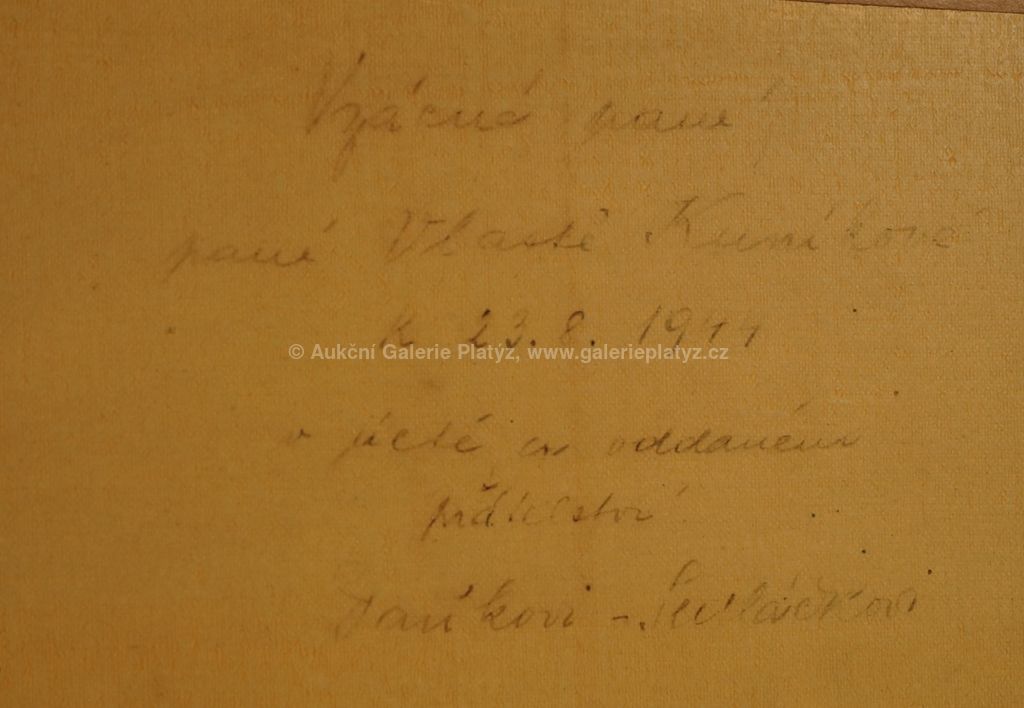 Vzácné paní
paní Vlastě Kuníkové
k 23. 8. 1944
© Aukční Galerie Platýz, www.galerieplatyz.cz
v úctě a v oddaném
přátelství
Daříkovi - Sedláčkovi